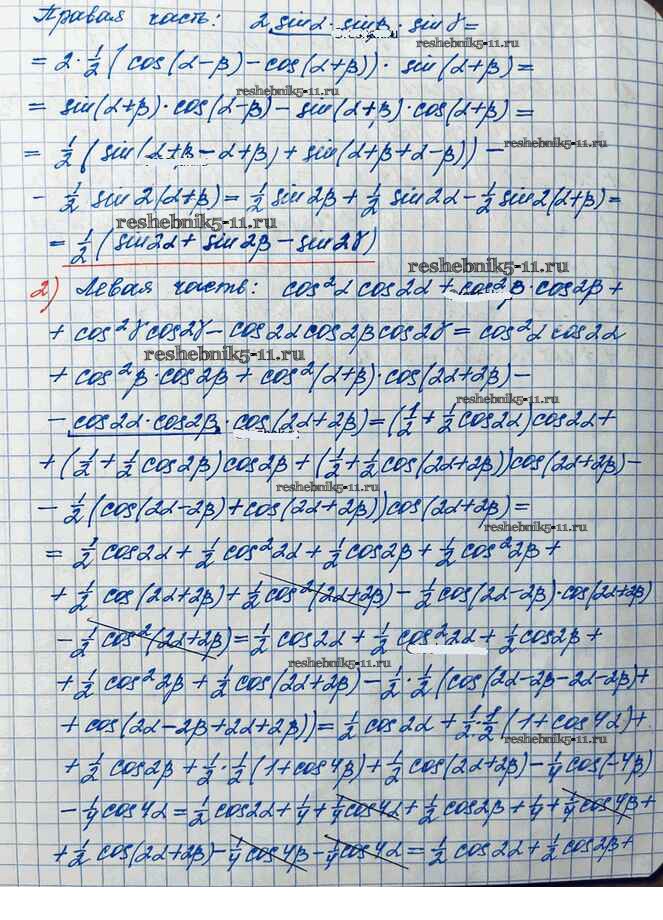 Правая часть: 2 sinα · sinβ · sinγ =
reshebnik5-11.ru
= 2 · 1/2 (cos(α-β) - cos(α+β)) · sin(α+β) =
reshebnik5-11.ru
= sin(α+β) · cos(α-β) - sin(α+β) · cos(α+β) =
= 1/2 (sin(α+β-α+β) + sin(α+β+α-β)) -
reshebnik5-11.ru
- 1/2 sin2(α+β) = 1/2 sin2β + 1/2 sin2α - 1/2 sin2(α+β) =
reshebnik5-11.ru
= 1/2 (sin2α + sin2β - sin2γ)
reshebnik5-11.ru
2) Левая часть: cos²α cos2α + cos²β · cos2β +
+ cos²γ cos2γ - cos2α cos2β cos2γ = cos²α cos2α
reshebnik5-11.ru
+ cos²β · cos2β + cos²(α+β) · cos(2α+2β) -
reshebnik5-11.ru
- cos2α · cos2β · cos(2α+2β) = (1/2 + 1/2 cos2α) cos2α +
+ (1/2 + 1/2 cos2β) cos2β + (1/2 + 1/2 cos(2α+2β)) cos(2α+2β) -
reshebnik5-11.ru
- 1/2 (cos(2α-2β) + cos(2α+2β)) cos(2α+2β) =
reshebnik5-11.ru
= 1/2 cos2α + 1/2 cos²2α + 1/2 cos2β + 1/2 cos²2β +
+ 1/2 cos(2α+2β) + 1/2 cos²(2α+2β) - 1/2 cos(2α-2β) · cos(2α+2β)
- 1/2 cos²(2α+2β) = 1/2 cos2α + 1/2 cos²2α + 1/2 cos2β +
reshebnik5-11.ru
+ 1/2 cos²2β + 1/2 cos(2α+2β) - 1/2 · 1/2 (cos(2α-2β-2α-2β) +
+ cos(2α-2β+2α+2β)) = 1/2 cos2α + 1/2 · 1/2 (1+cos4α) +
reshebnik5-11.ru
+ 1/2 cos2β + 1/2 · 1/2 (1+cos4β) + 1/2 cos(2α+2β) - 1/4 cos(-4β)
- 1/4 cos4α = 1/2 cos2α + 1/4 + 1/4 cos4α + 1/2 cos2β + 1/4 + 1/4 cos4β +
+ 1/2 cos(2α+2β) - 1/4 cos4β - 1/4 cos4α = 1/2 cos2α + 1/2 cos2β +